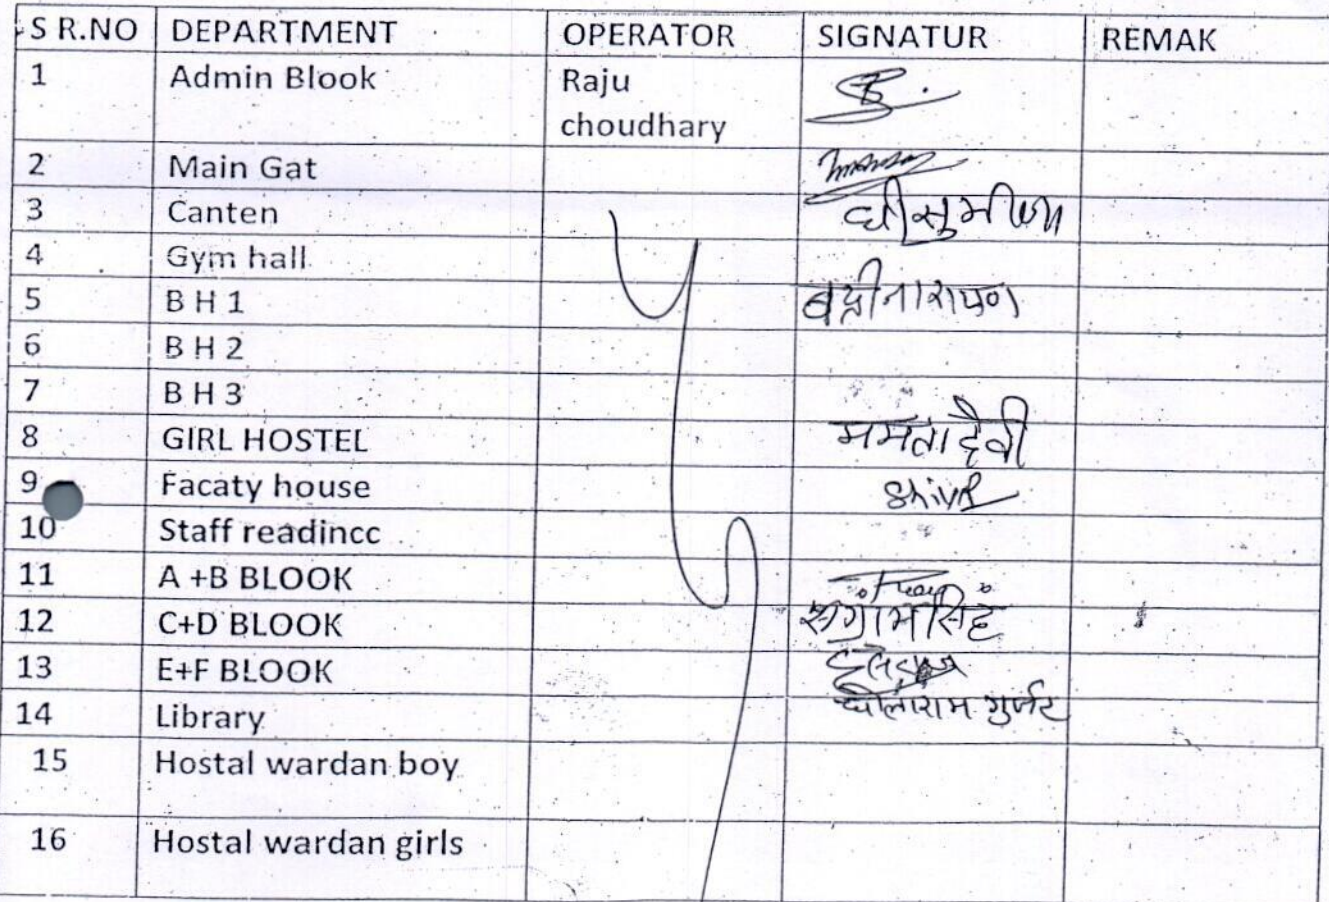 S R.NO DEPARTMENT OPERATOR SIGNATUR REMAK
1 Admin Blook Raju
choudhary
2 Main Gat
3 Canten
4 Gym hall
5 B H 1 बद्रीनारायण
6 B H 2
7 B H 3
8 GIRL HOSTEL ममता देवी
9 Facaty house
10 Staff readincc
11 A +B BLOOK
12 C+D BLOOK संग्रामसिंह
13 E+F BLOOK
14 Library गुर्जर
15 Hostal wardan boy
16 Hostal wardan girls